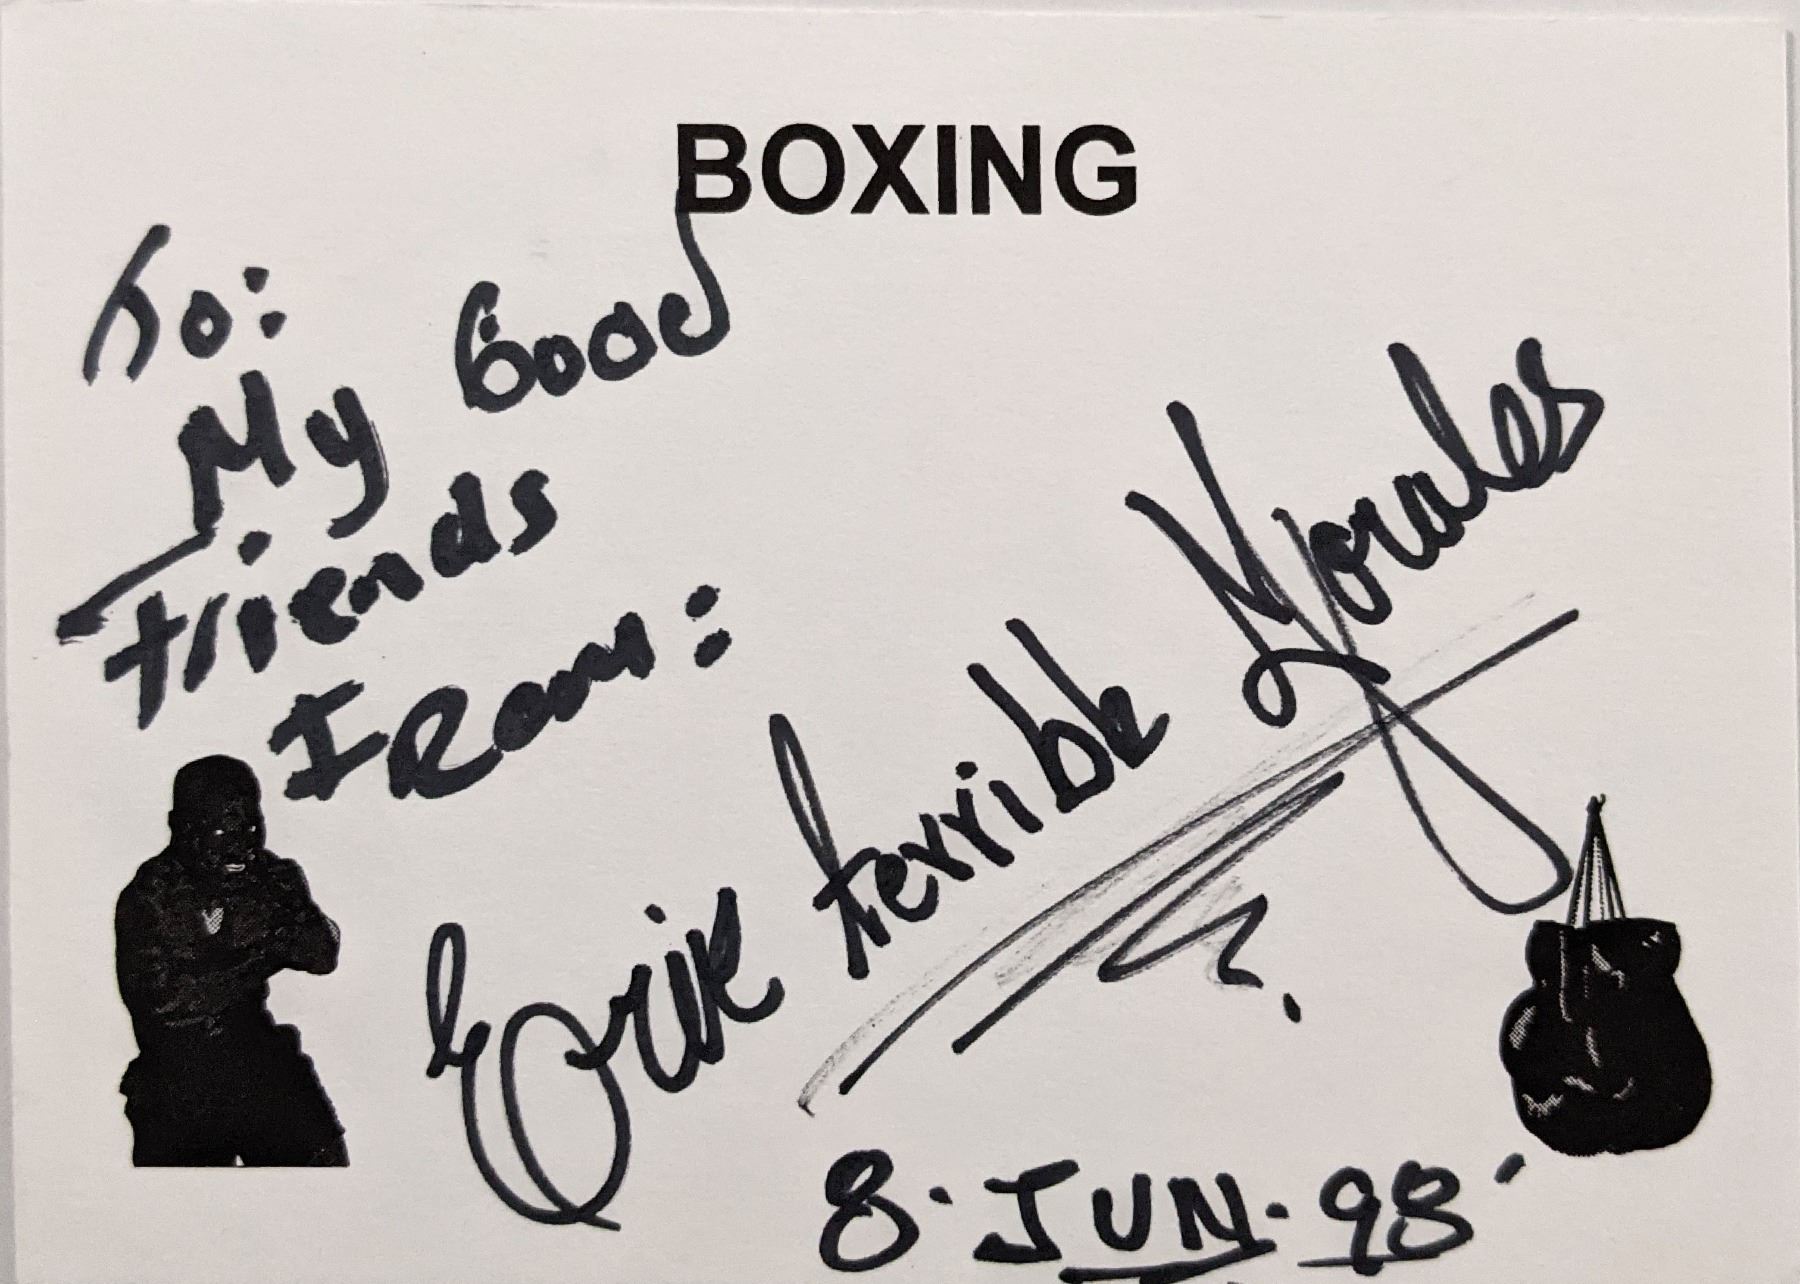 BOXING
To:
My Good
Friends
From:
Erik terrible Morales
8-JUN-98-